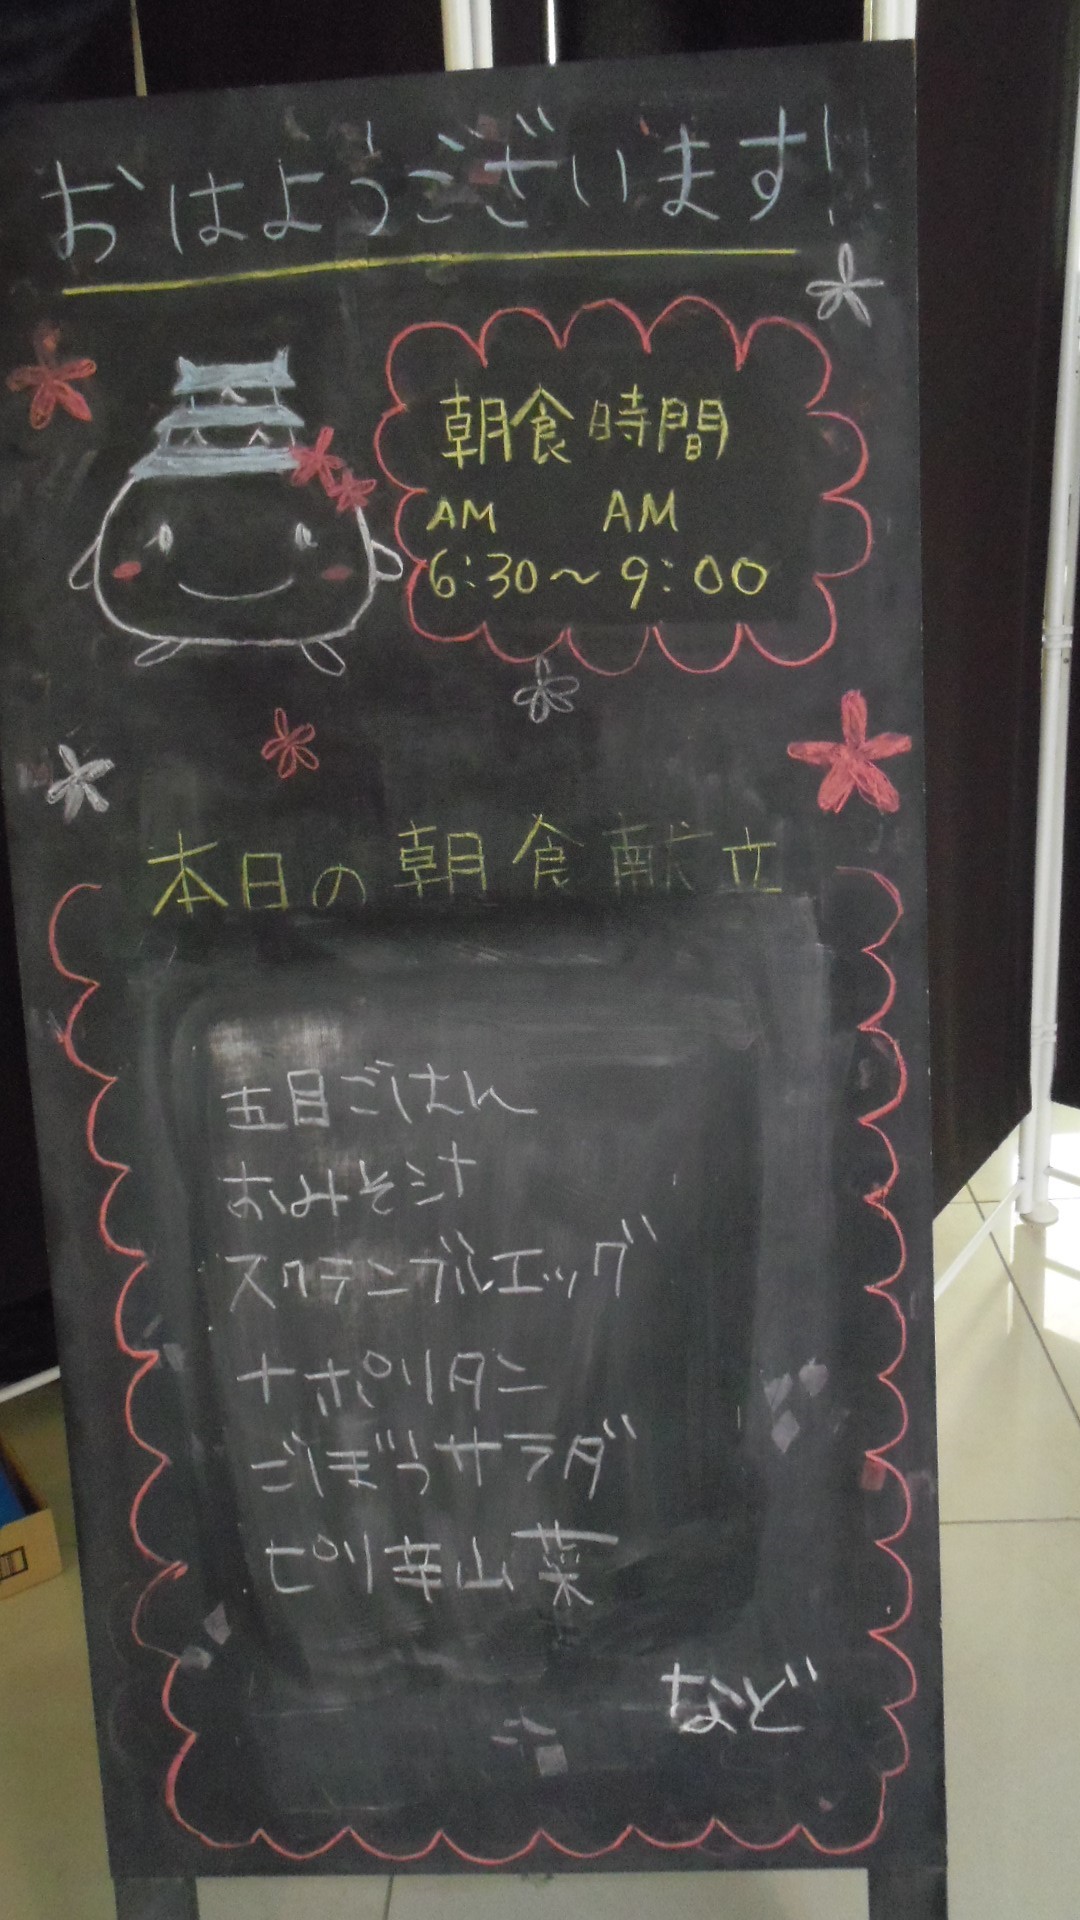 おはようございます!
朝食時間
AM AM
6:30〜9:00
本日の朝食献立
五目ごはん
おみそ汁
スクランブルエッグ
ナポリタン
ごぼうサラダ
ピリ辛山菜
など